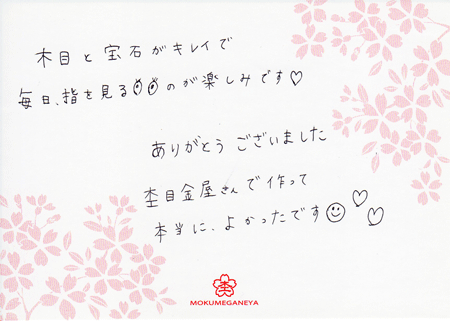 木目と宝石がキレイで
毎日、指を見る👀のが楽しみです♡
ありがとうございました
杢目金屋さんで作って
本当に、よかったです☺♡♡
杢
MOKUMEGANEYA